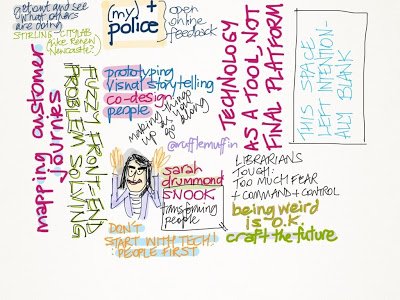 get out and see
what others
are doing
STIRLING - CITYLAB
Alke Renew
Newcastle?
(my) +
police
open
online
feedback
mapping customer
journies
FUZZY FRONT-END
PROBLEM SOLVING
prototyping
visual storytelling
co-design
people
making things
up as you
go along
@rufflemuffin
TECHNOLOGY
AS A TOOL, NOT
FINAL PLATFORM
THIS SPACE
LEFT INTENTION-
ALLY BLANK
sarah
drummond
SNOOK
transforming
people
LIBRARIANS
TOUGH:
TOO MUCH FEAR
+ COMMAND + CONTROL
being weird
is O.K.
craft the future
DON'T
START WITH TECH!
: PEOPLE FIRST